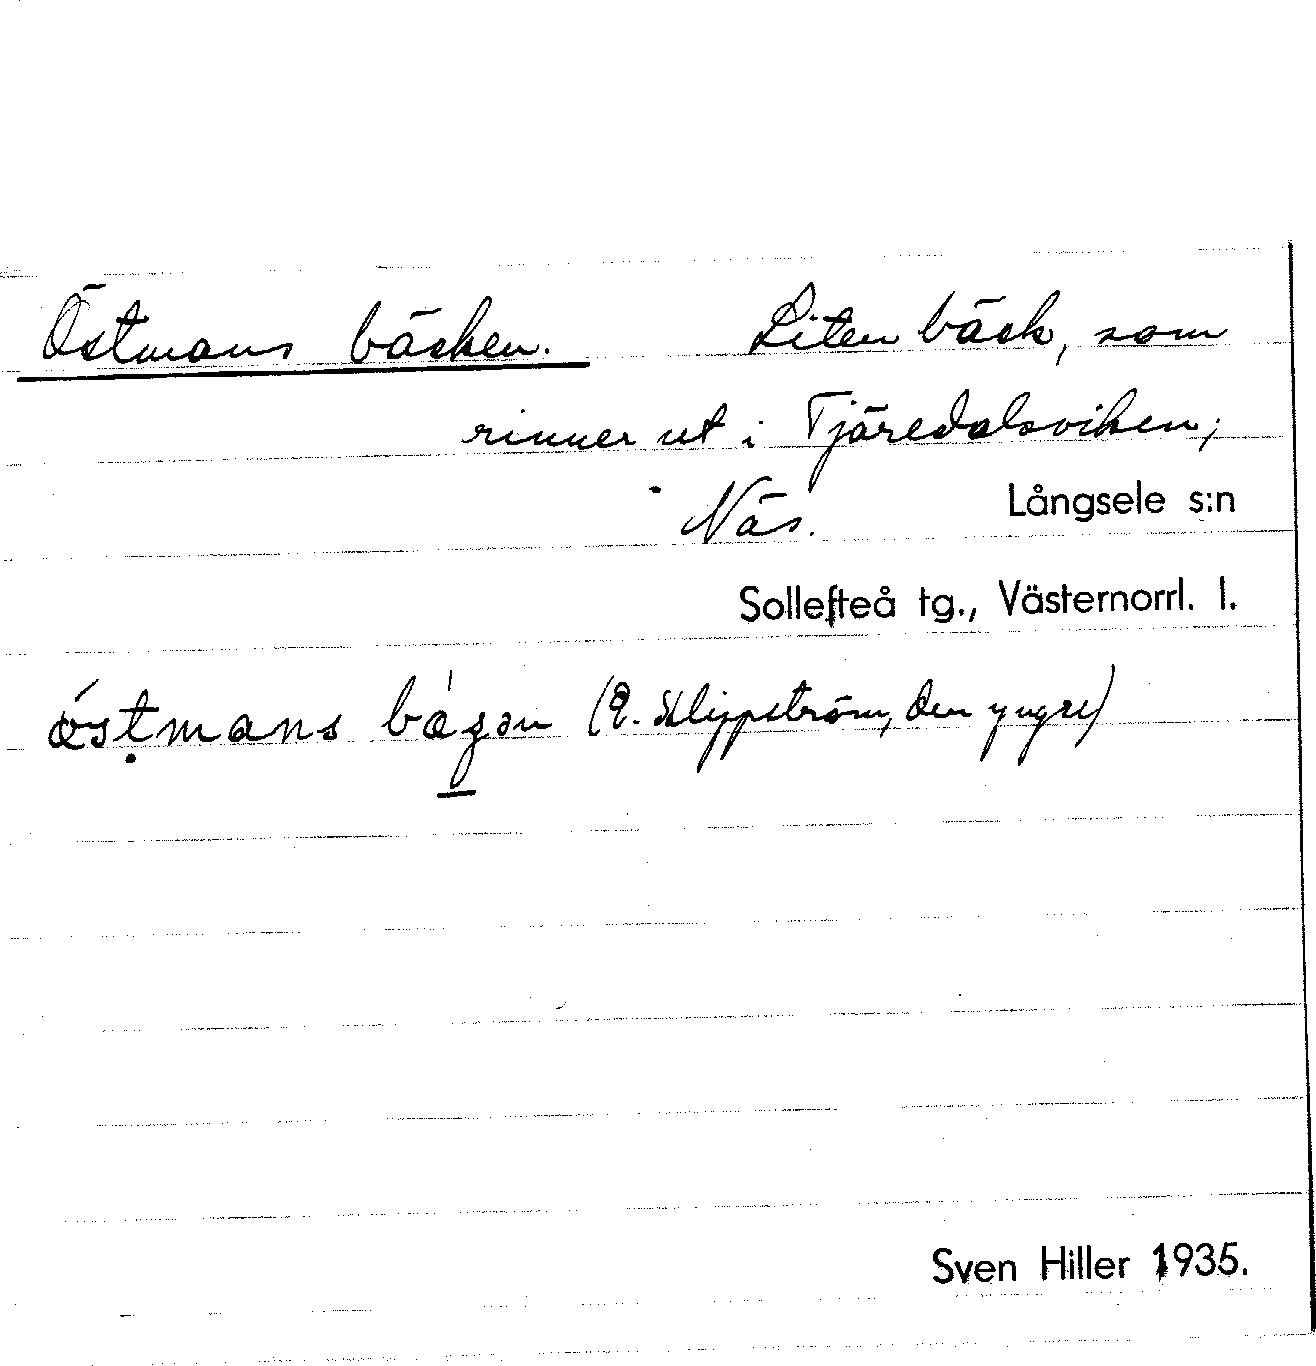 Östmans bäcken. Liten bäck, som
rinner ut i Tjäredalsviken,
Näs. Långsele s:n
Sollefteå tg., Västernorrl. l.
(E. Klippström, den yngre)
Sven Hiller 1935.